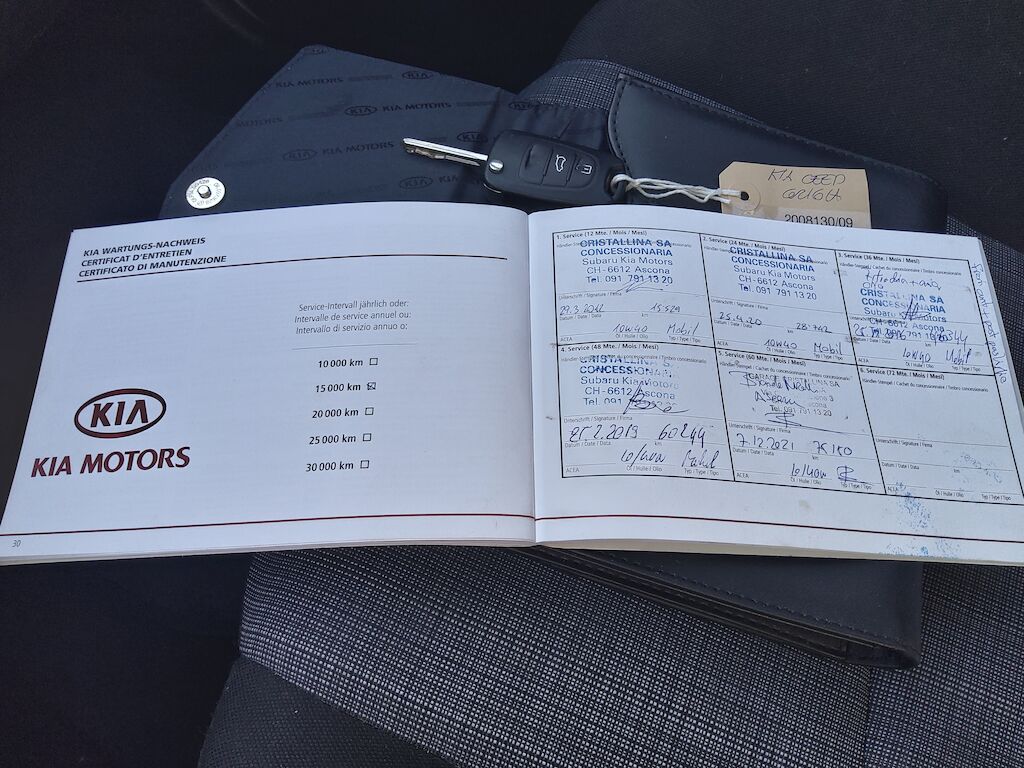 KIA MOTORS
KIA MOTORS
KIA MOTORS
KIA CEED
GRIGIA
2008130/09
KIA WARTUNGS-NACHWEIS
CERTIFICAT D'ENTRETIEN
CERTIFICATO DI MANUTENZIONE
Service-Intervall jährlich oder:
Intervalle de service annuel ou:
Intervallo di servizio annuo o:
10 000 km
15 000 km
20 000 km
25 000 km
30 000 km
KIA
KIA MOTORS
30
1. Service (12 Mte. / Mois / Mesi)
CRISTALLINA SA
CONCESSIONARIA
Subaru Kia Motors
CH-6612 Ascona
Tel. 091 791 13 20
Unterschrift / Signature / Firma
29.3.2012 15529
Datum / Date / Data km
10W40 Mobil
ACEA Öl / Huile / Olio Typ / Type / Tipo
2. Service (24 Mte. / Mois / Mesi)
CRISTALLINA SA
CONCESSIONARIA
Subaru Kia Motors
CH-6612 Ascona
Tel. 091 791 13 20
Unterschrift / Signature / Firma
28.742
Datum / Date / Data km
10W40 Mobil
ACEA Öl / Huile / Olio Typ / Type / Tipo
3. Service (36 Mte. / Mois / Mesi)
Händler-Stempel / Cachet du concessionnaire / Timbro concessionario
CRISTALLINA SA
CONCESSIONARIA
Subaru Kia Motors
CH-6612 Ascona
10W40 Mobil
ACEA Öl / Huile / Olio Typ / Type / Tipo
4. Service (48 Mte. / Mois / Mesi)
CRISTALLINA SA
CONCESSIONARIA
Subaru Kia Motors
CH-6612 Ascona
Tel. 091
Unterschrift / Signature / Firma
21.2.2019 60244
Datum / Date / Data km
10/40W Mobil
ACEA Öl / Huile / Olio Typ / Type / Tipo
5. Service (60 Mte. / Mois / Mesi)
Händler-Stempel / Cachet du concessionnaire / Timbro concessionario
Tel. 091 791 13 20
Unterschrift / Signature / Firma
7.12.2021
Datum / Date / Data km
10/40W
ACEA Öl / Huile / Olio Typ / Type / Tipo
6. Service (72 Mte. / Mois / Mesi)
Händler-Stempel / Cachet du concessionnaire / Timbro concessionario
Unterschrift / Signature / Firma
Datum / Date / Data km
ACEA Öl / Huile / Olio Typ / Type / Tipo